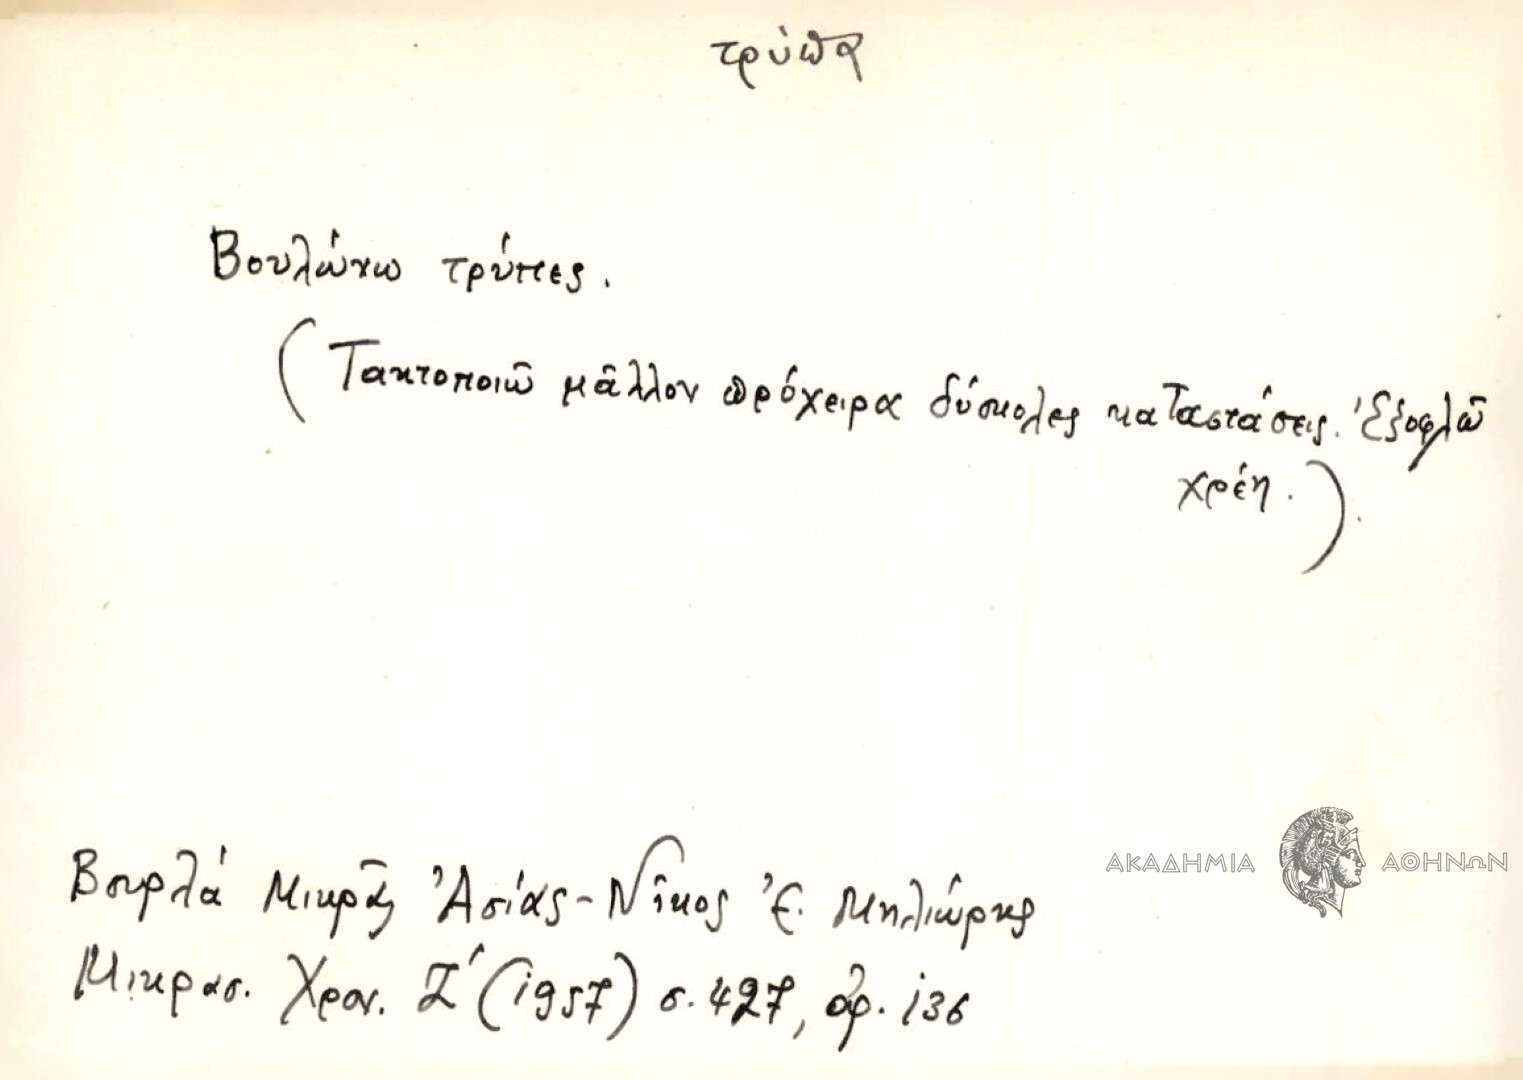 τρύπα
Βουλώνω τρύπες.
(Τακτοποιῶ μᾶλλον πρόχειρα δύσκολες καταστάσεις. Ἐξοφλῶ
χρέη.).
ΑΚΑΔΗΜΙΑ ΑΘΗΝΩΝ
Βουρλά Μικρᾶς Ἀσίας - Νῖκος Ἐ. Μηλιώρης
Μικρασ. Χρον. Ζ΄ (1957) σ. 427, ἀρ. 136